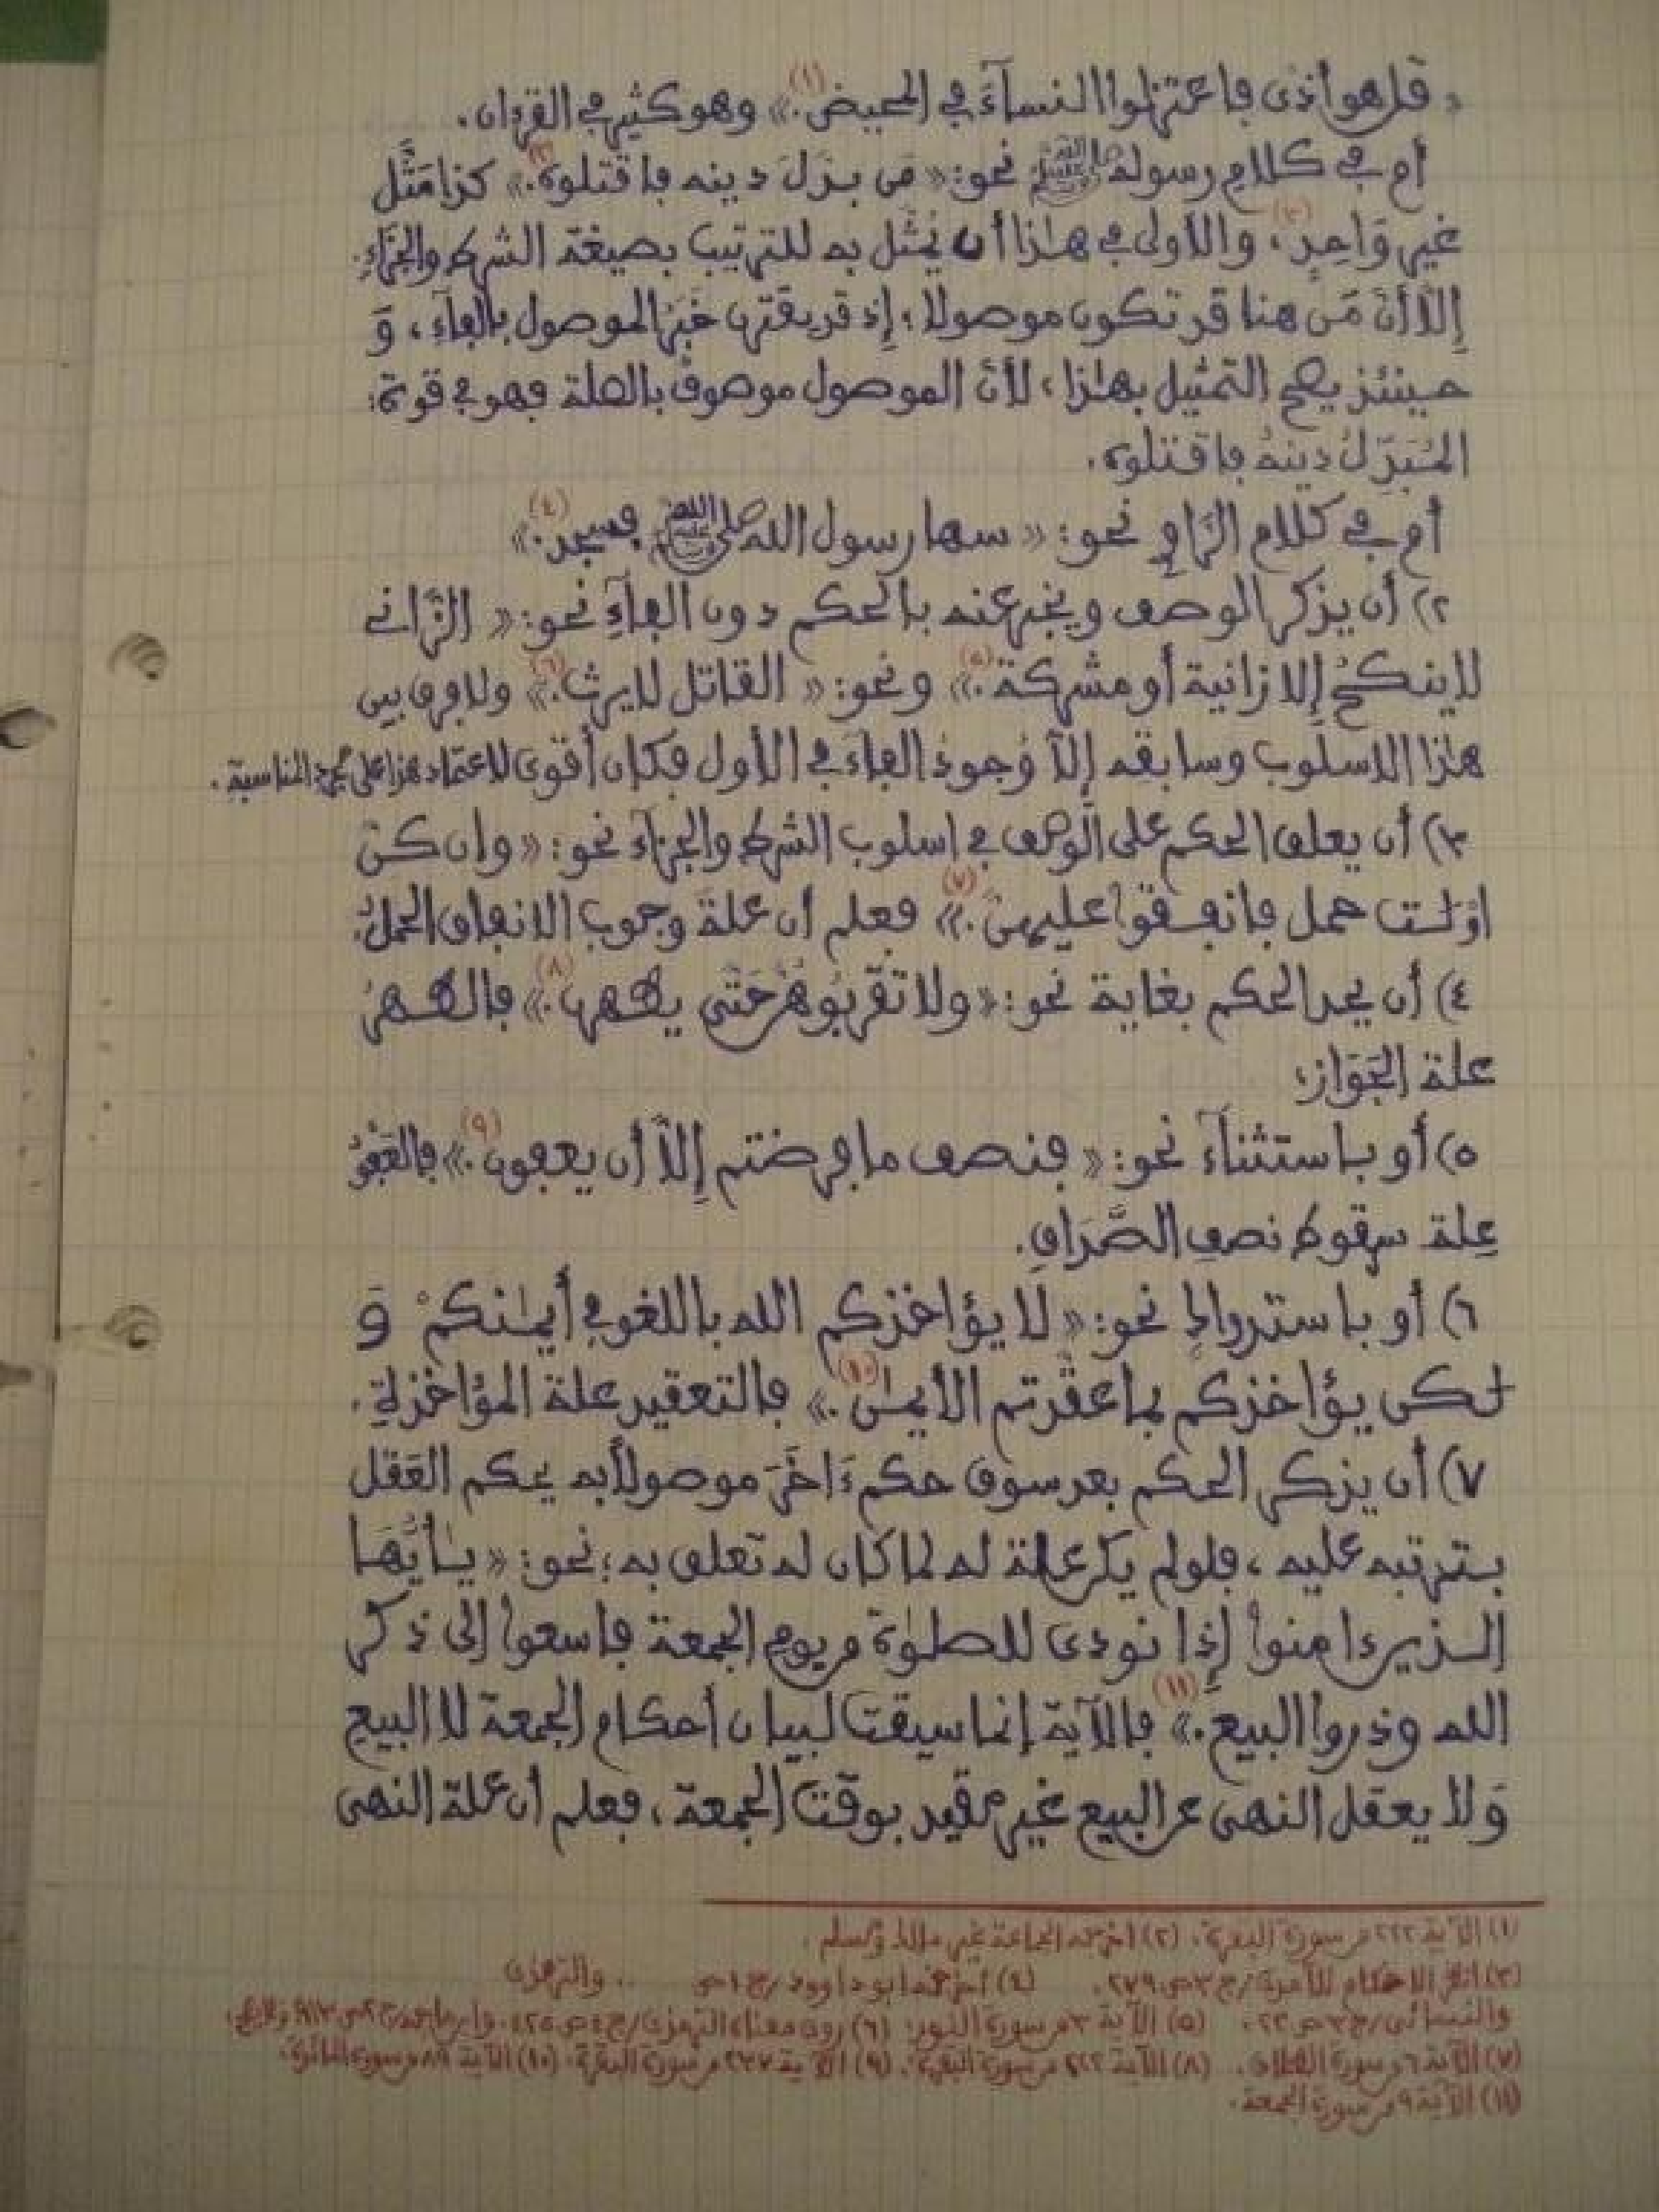 « قل هو أذى فاعتزلوا النسآءَ في المحيض.(١)» وهو كثير في القرءان.
أم في كلام رسوله ﷺ نحو: « من بدَّل دينه فاقتلوه.(٢)» كذا مَثَّل
غير وَاحِدٍ(٣)، والأولى في هٰذا أن يُمَثَّل به للترتيب بصيغة الشرط والجَزَآءِ.
إلاَّ أنَّ مَن هنا قد تكون موصولا، إذ قد يقترن خَبَرُ الموصول بالفآءِ، وَ
حينئذ يصح التمثيل بهٰذا، لأنّ الموصول موصوفٌ بالصلة فهو في قوة:
المُبَدِّلُ دينهُ فاقتلوه.
أم في كلام الرَّاوِي نحو: « سها رسول الله ﷺ فسجد.(٤)»
٢) أن يذكر الوصف ويخبر عنه بالحكم دون الفآءِ نحو: « الزَّاني
لاينكحُ إلا زانية أو مشركة.(٥)» ونحو: « القاتل لايرث.(٦)» ولا فرق بين
هٰذا الاسلوب وسابقه إلاَّ وُجودُ الفآءِ في الأول فكان أقوى لاعتماد هذا على مجرد المناسبة.
٣) أن يعلق الحكم على الوصف في اسلوب الشرط والجزآء نحو: « وإن كنّ
اوْلٰت حمل فأنفقوا عليهنّ.(٧)» فعلم أن علةَ وجوب الانفاق الحملُ؛
٤) أن يحد الحكم بغاية نحو: « ولا تقْربُوهُنّ حَتّى يطهرن.(٨)» فالطهرُ
علة الجَوَاز؛
٥) أو باستثنآءِ نحو: « فنصف ما فرضتم إلاَّ أن يعفون.(٩)» فالعَفْوُ
عِلة سقوط نصف الصَّدَاقِ.
٦) أو باستدراكٍ نحو: « لَا يؤاخذكم الله باللغو في أيمٰنكمْ وَ
لٰكن يؤاخذكم بما عقَّدتم الأيمٰن.(١٠)» فالتعقيد علة المؤاخذةِ.
٧) أن يذكر الحكم بعد سوق حكم ءَاخَرَ موصولاً به يحكم العَقل
بترتبه عليه، فلو لم يكن علة له لما كان له تعلق به؛ نحو: « يٰأَيُّهَا
الذين ءامنوا إذا نودى للصلوٰة من يوم الجمعة فاسعوا إلى ذكر
الله وذروا البيع.(١١)» فالآية إنما سيقت لبيان أحكام الجمعة لا البيع
وَلا يعقل النهى عن البيع غير مقيد بوقت الجمعة، فعلم أن علة النهى
(١) الآية ٢٢٢ من سورة البقرة. (٢) أخرجه الجماعة غير مالك ومسلم.
(٣) انظر الاحكام للآمدى/ج ٣ ص ٢٧٩. (٤) أخرجه أبو داوود/ج ١ ص .. والترمذى
والنسائى/ج ٣ ص ٢٣. (٥) الآية ٣ من سورة النور؛ (٦) روى معناه الترمذى/ج ٤ ص ٤٢٥، وابن ماجه/ج ٢ ص ٩١٣
(٧) الآية ٦ من سورة الطلاق. (٨) الآية ٢٢٢ من سورة البقرة. (٩) الآية ٢٣٧ من سورة البقرة. (١٠) الآية ٨٩ من سورة المائدة.
(١١) الآية ٩ من سورة الجمعة.